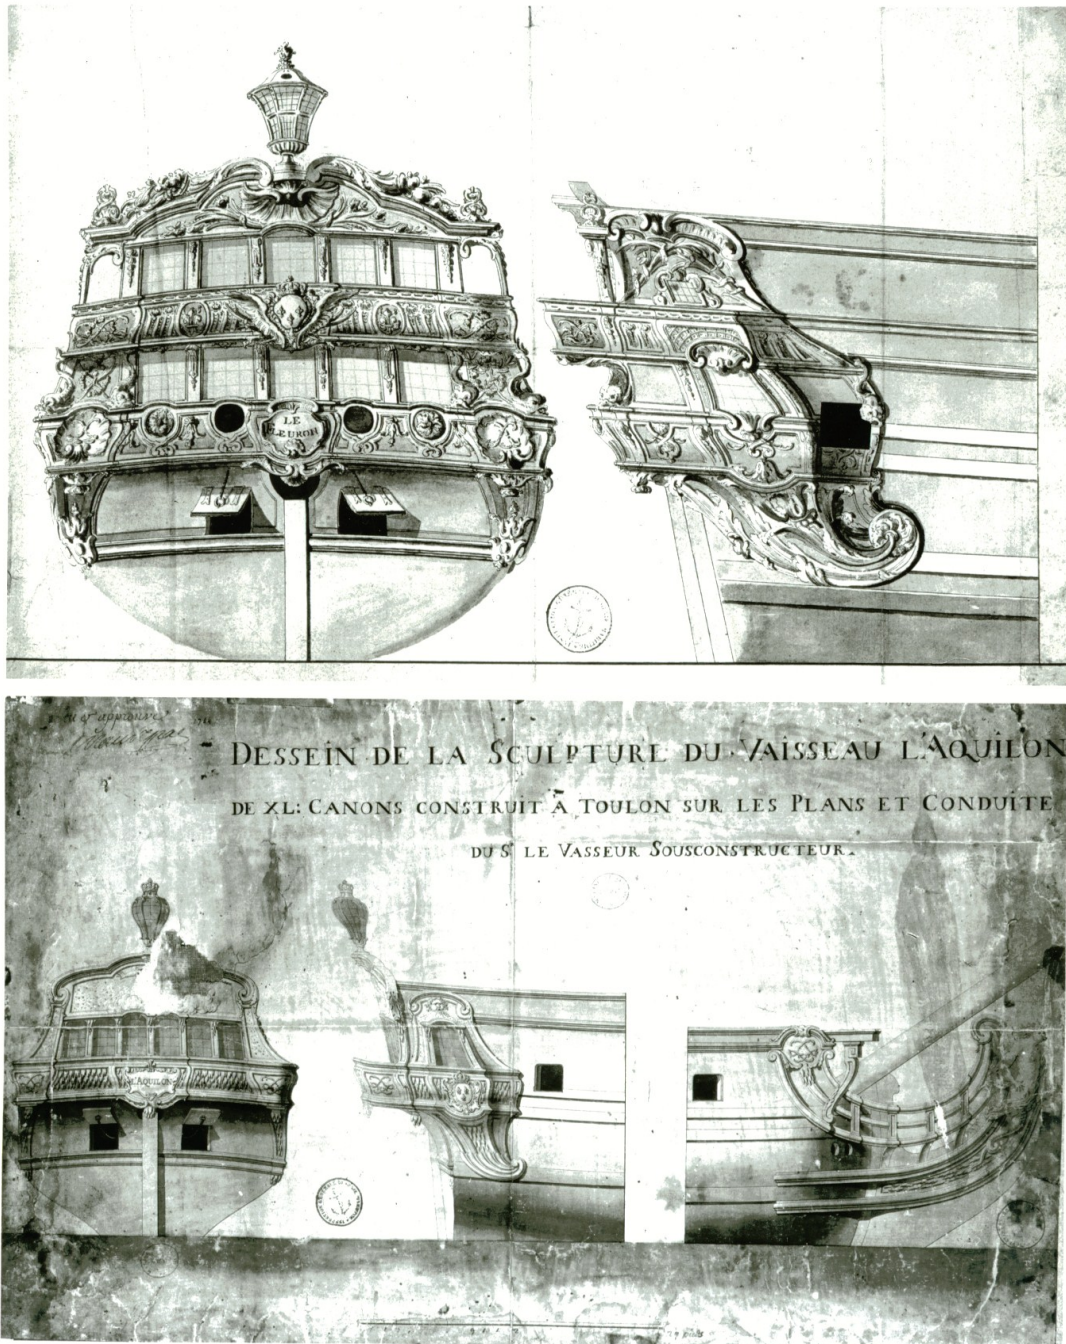 LE
FLEURON
vu et approuvé
DESSEIN DE LA SCULPTURE DU VAISSEAU L'AQUILON
DE XL: CANONS CONSTRUIT A TOULON SUR LES PLANS ET CONDUITE
DU Sr LE VASSEUR SOUSCONSTRUCTEUR.
L'AQUILON